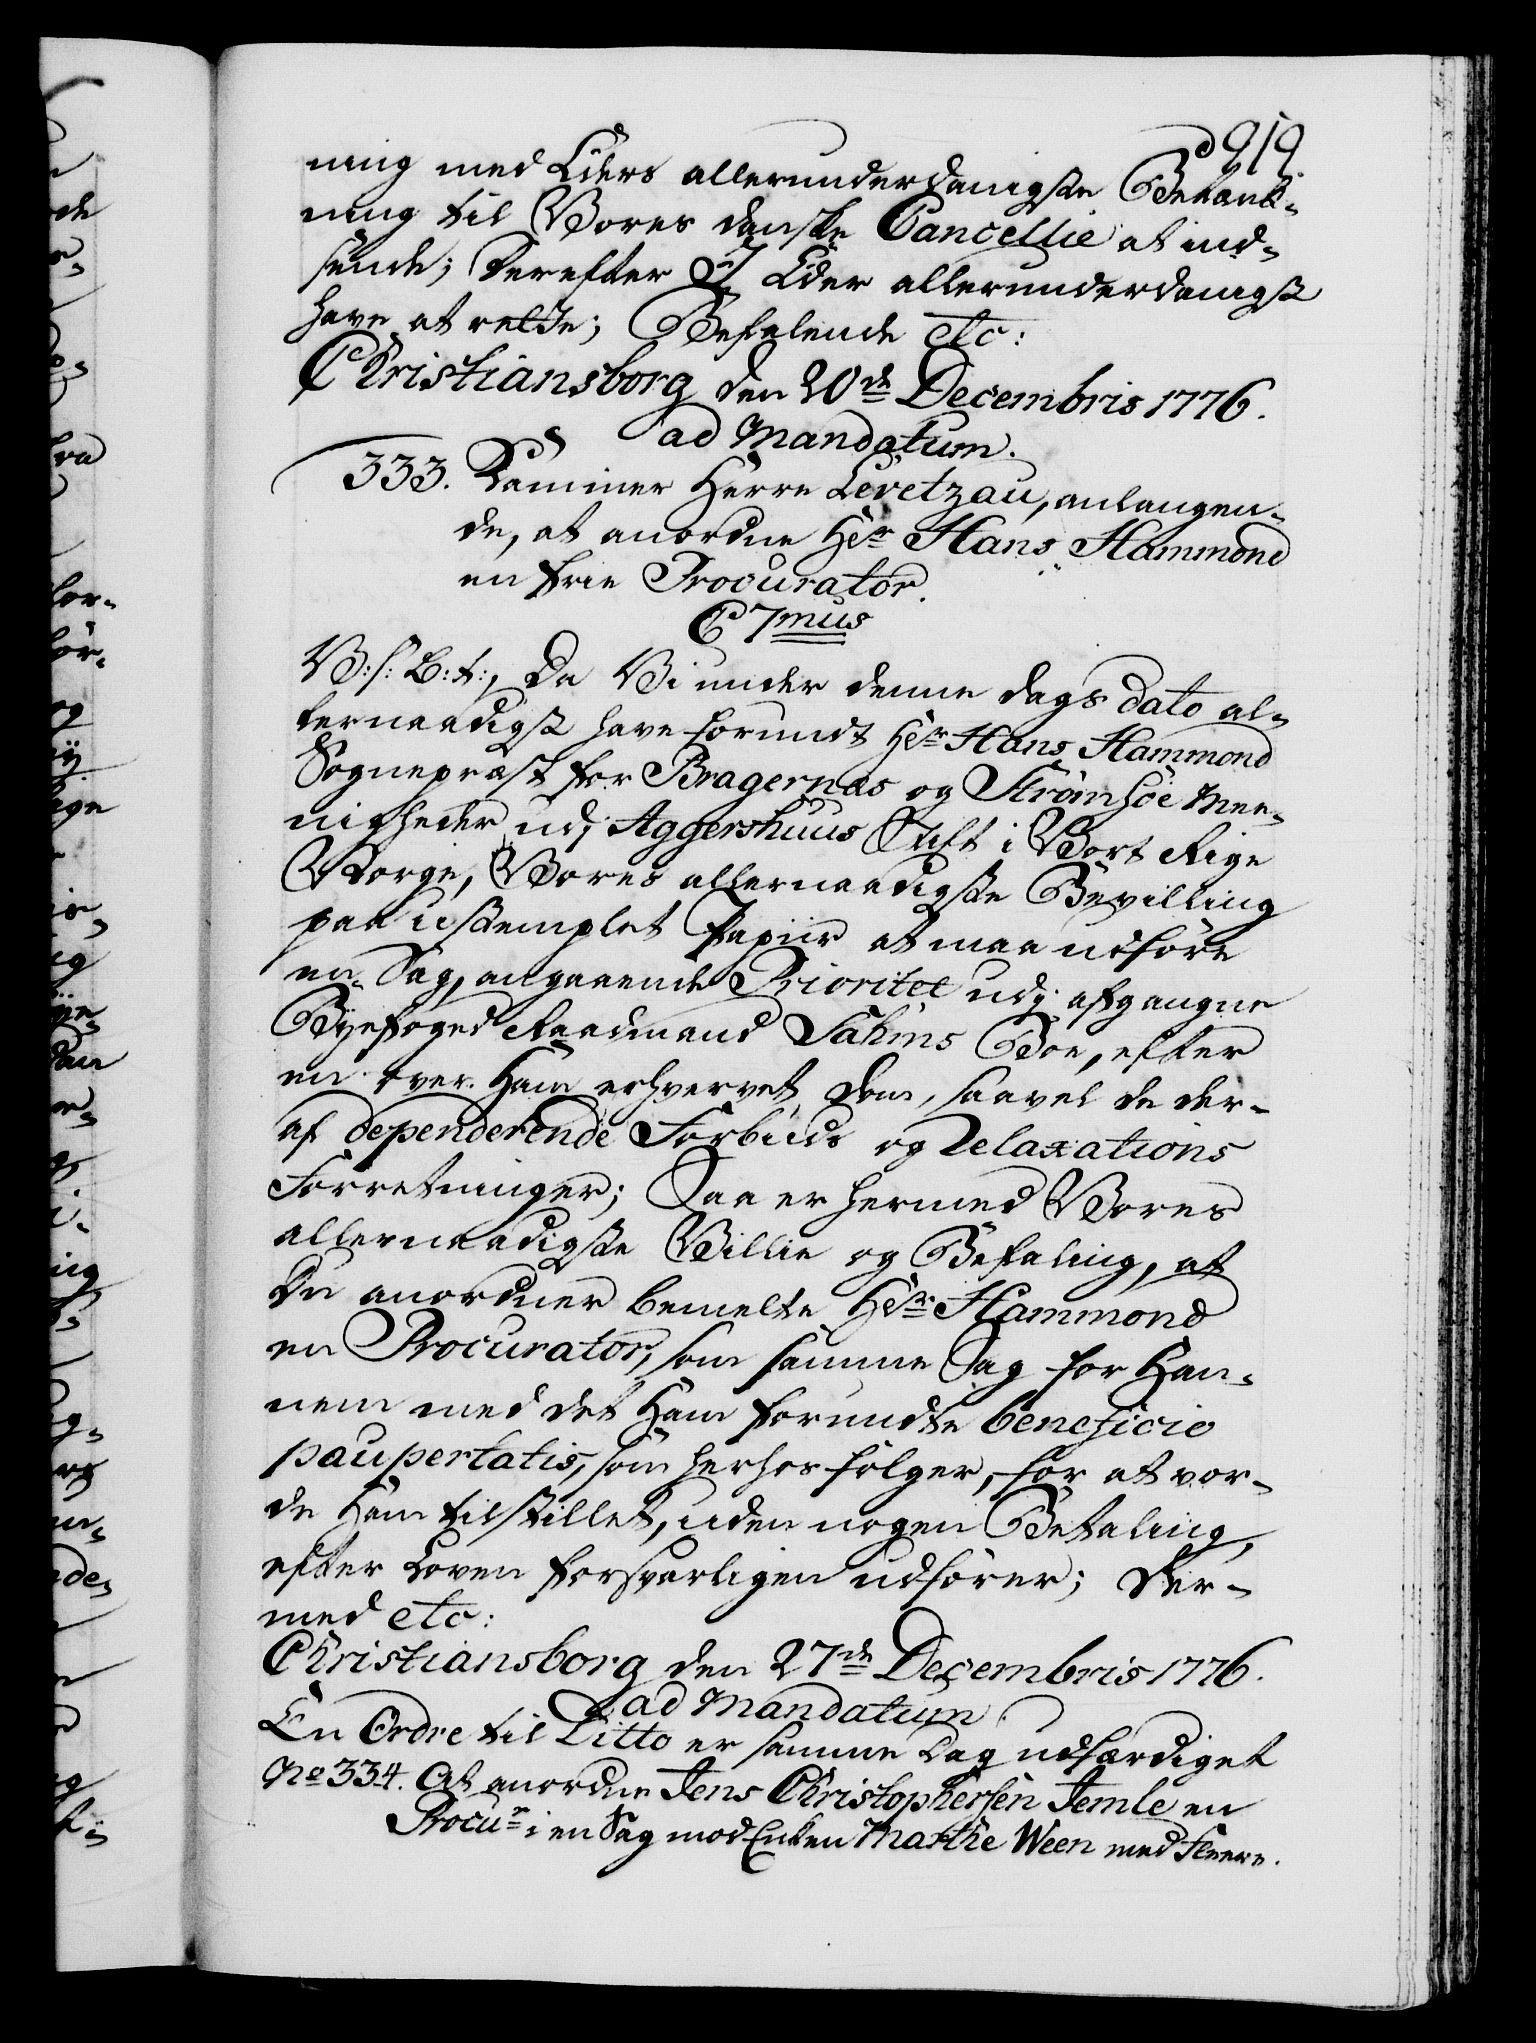 919.
ning med Eders allerunderdanigste Betænk-
ning til Vores danske Cancellie at ind-
sende; Derefter I Eder allerunderdanigst
have at rette; Befalende etc:
Christiansborg den 20de Decembris 1776.
ad Mandatum.
333. Kammer Herre Levetzau, anlangen-
de, at anordne Hr Hans Hammond
en frie Procurator.
C 7mus
V: s: B: t:, Da Vi under denne Dags dato al-
lernaadigst have forundt Hr Hans Hammond
Sognepræst for Bragernæs og Strømsøe Mee-
nigheder udj Aggershuus Stift i Vort Rige
Norge, Vores allernaadigste Bevilling
paa ustemplet Papiir at maa udføre
en Sag, angaaende Prioritet udj afgangne
Byefoged Raadmand Sahms Boe, efter
en over Ham erhvervet Dom, saavel de der-
af dependerende Forbuds og Relaxations
Forretninger; Saa er hermed Vores
allernaadigste Villie og Befaling, at
Du anordner bemelte Hr Hammond
en Procurator, som samme Sag for Han-
nem med det Ham forundte beneficio
paupertatis, som herhos følger, for at vor-
de Ham tilstillet, uden nogen Betaling,
efter Loven forsvarligen udfører; Der-
med etc:
Christiansborg den 27de Decembris 1776.
ad Mandatum
En Ordre til Ditto er samme Dag udfærdiget
No 334. At anordne Jens Christophersen Jemle en
Procur i en Sag mod Enken Marthe Ween med fleere.